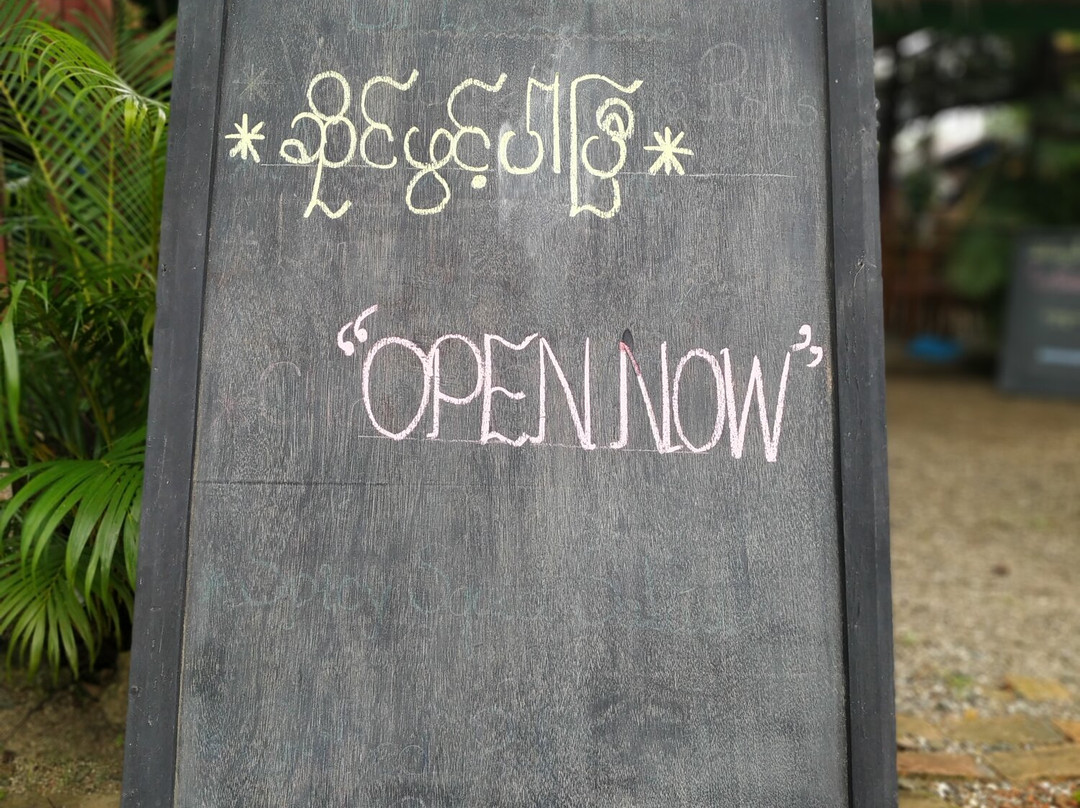 *ဆိုင်ဖွင့်ပါပြီ*
"OPEN NOW"